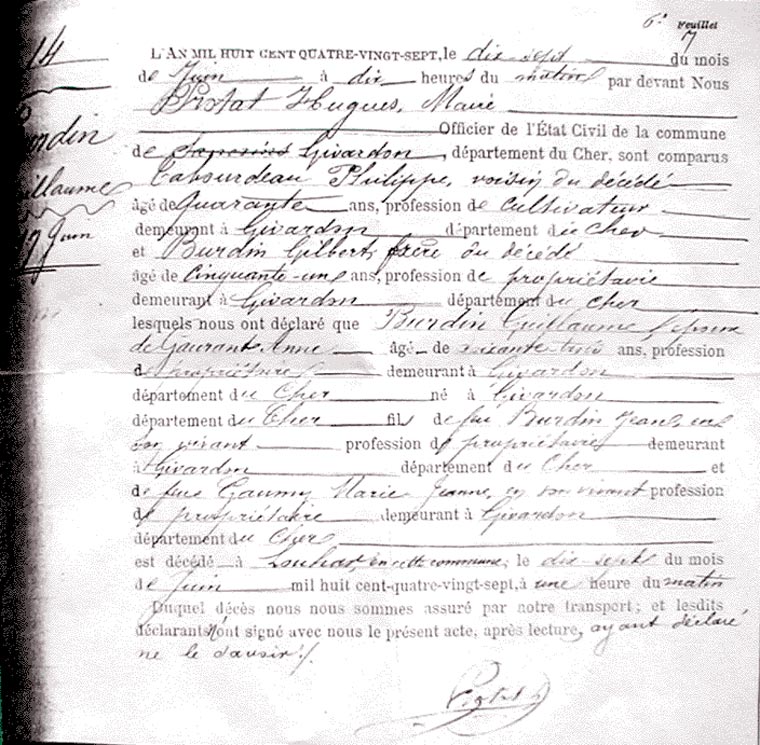 6e Feuillet
7
14
L'AN MIL HUIT CENT QUATRE-VINGT-SEPT, le dix-sept du mois
de Juin à dix heures du matin par devant Nous
Pistat Hugues, Maire
Officier de l'État Civil de la commune
rdin
de Givardon, département du Cher, sont comparus
illaume
Tabourdeau Philippe, voisin du décédé
âgé de quarante ans, profession de cultivateur
17 Juin
demeurant à Givardon département du Cher
et Burdin Gilbert, frère du décédé
âgé de Cinquante-une ans, profession de propriétaire
demeurant à Givardon département du Cher
lesquels nous ont déclaré que Burdin Guillaume
de Anne âgé de soixante-trois ans, profession
de propriétaire demeurant à Givardon
département du Cher né à Givardon
département du Cher fils de feu Burdin Jean, en
son vivant profession de propriétaire demeurant
à Givardon département du Cher et
de feue Gaumy Marie Jeanne, en son vivant profession
de propriétaire demeurant à Givardon
département du Cher
est décédé à en cette commune, le dix-sept du mois
de Juin mil huit cent-quatre-vingt-sept, à une heure du matin
Duquel décès nous nous sommes assuré par notre transport; et lesdits
déclarants n'ont signé avec nous le présent acte, après lecture, ayant déclaré
ne le savoir.
Pistat